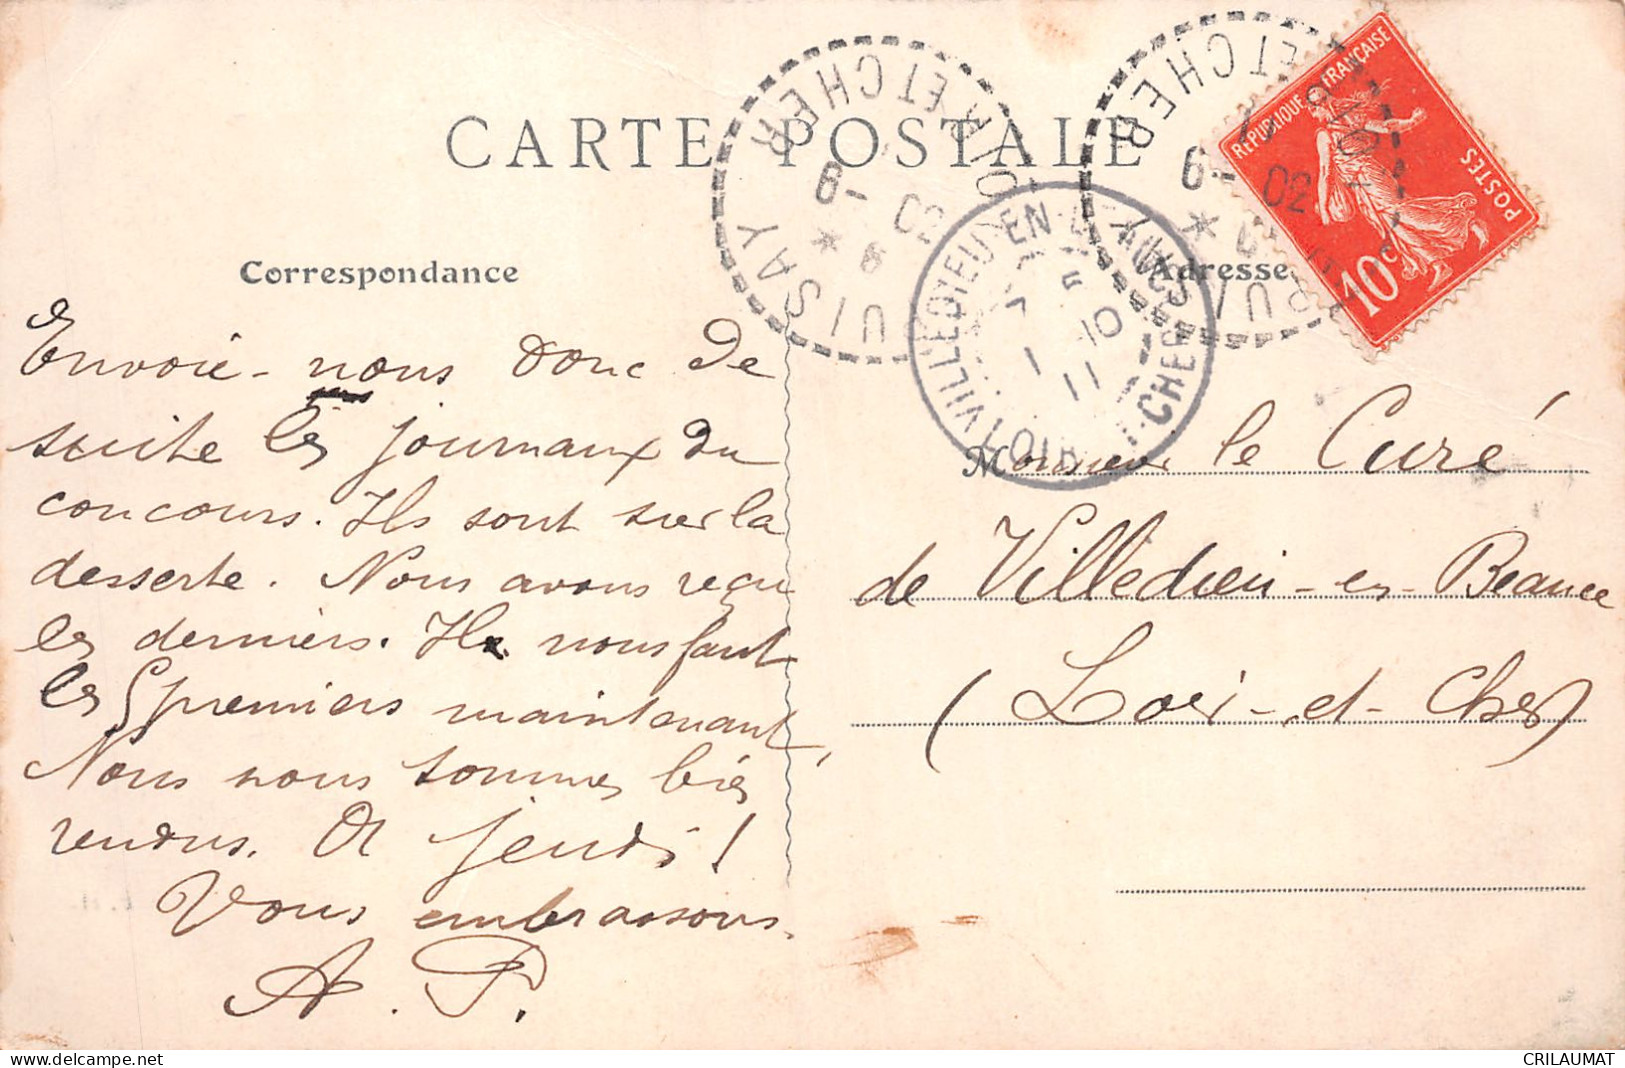 CARTE POSTALE
Correspondance
Envoie-nous donc de
suite les journaux du
concours. Ils sont sur la
desserte. Nous avons reçu
les derniers. Il nous faut
les 5 premiers maintenant,
Nous nous sommes bien
rendus. A jeudi!
Vous embrassons.
A. P.
Adresse
Monsieur le Curé
de Villedieu-en-Beauce
(Loir-et-Cher)
REPUBLIQUE FRANÇAISE
POSTES
10c
LOIR ET CHER
6-
02
VILLEDIEU-EN-BEAUCE
LOIR-ET-CHER
10
11
LOIR ET CHER
6-
02
CRILAUMAT